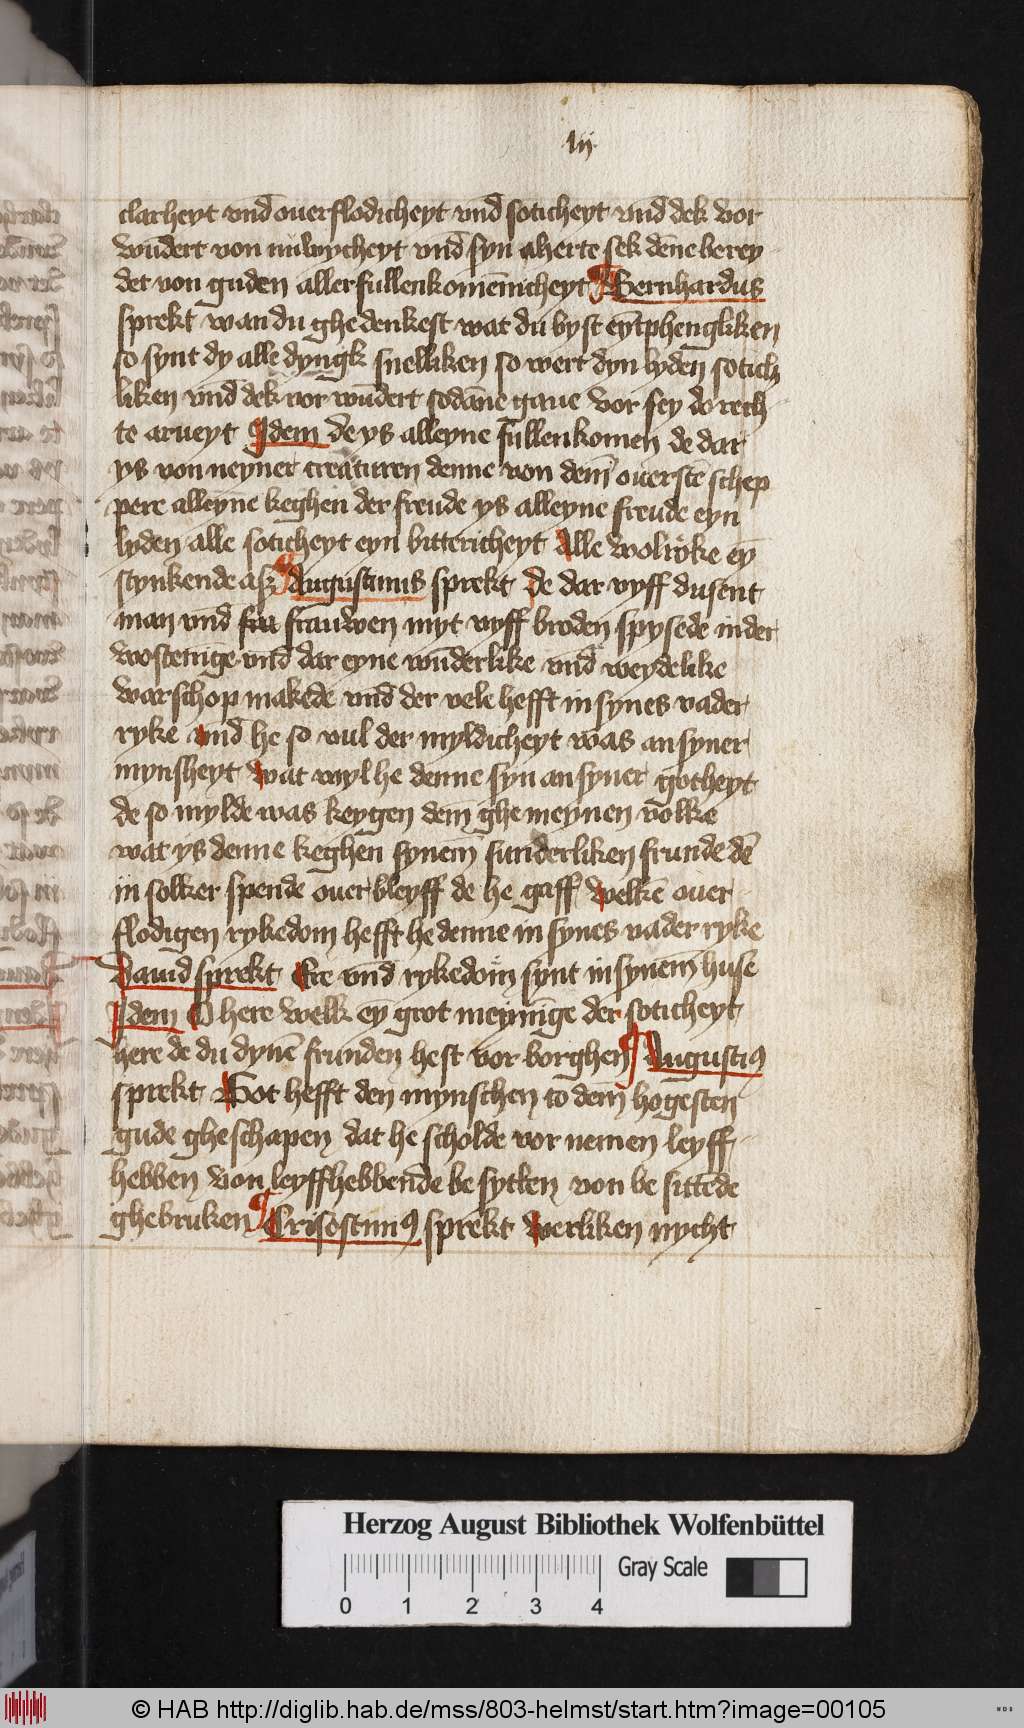 lij
clarheyt vnd̄ ouerflodicheyt vnd̄ soticheyt vnd dek vor
wūdert von nuwycheyt vnd̄ syn aherte sek dēne berey
det von guden allerfullenkomēnicheyt ¶ Bernhardus
sprekt wan du ghedenkest wat du byst eȳtphengliken
so synt dy alle dyngk snelliken so wert dyn lyden sotich
liken vnd dek vor wūdert sodāne gaue vor sey do rech
te arueyt Idem de ys alleyne fullenkomen de dar
ys von neyner creaturen denne von dem̄ ouerstē schep
pere alleyne keghen der freude ys alleyne freude eyn
lyden alle soticheyt eyn bittericheyt Alle wolryke eȳ
stynkende asz ¶ Augustinus sprekt de dar vyff dusent
man vnd̄ fru frauwen myt vyff broden spysede in der
wostenīge vnd̄ dar eyne wūderlike vnd̄ weydelike
warschop makede vnd̄ der vele hefft in synes vader
ryke vnd̄ he so vul der myldicheyt was an syner
mynsheyt wat wyl he denne syn an syner gotheyt
de so mylde was keygen dem̄ ghemeynen volke
wat ys denne keghen synem̄ sunderliken frunde dē
in solker spende ouer bleyff de he gaff welkē ouer
flodigen rykedom hefft he denne in synes vader ryke
Dauid sprekt Ere vnd̄ rykedom synt in synem̄ huse
Idem O here welk eȳ grot meynīge der soticheyt
here de du dynē frunden hest vor borghen ¶ Augustiꝯ
sprekt Got hefft den mynschen to dem̄ hogesten
gude gheschapen dat he scholde vor nemen leyff
hebben von leyffhebbende be sytten von be sittēde
ghebruken ¶ Crisostimꝯ sprekt werliken nycht
Herzog August Bibliothek Wolfenbüttel
Gray Scale
0 1 2 3 4
© HAB http://diglib.hab.de/mss/803-helmst/start.htm?image=00105